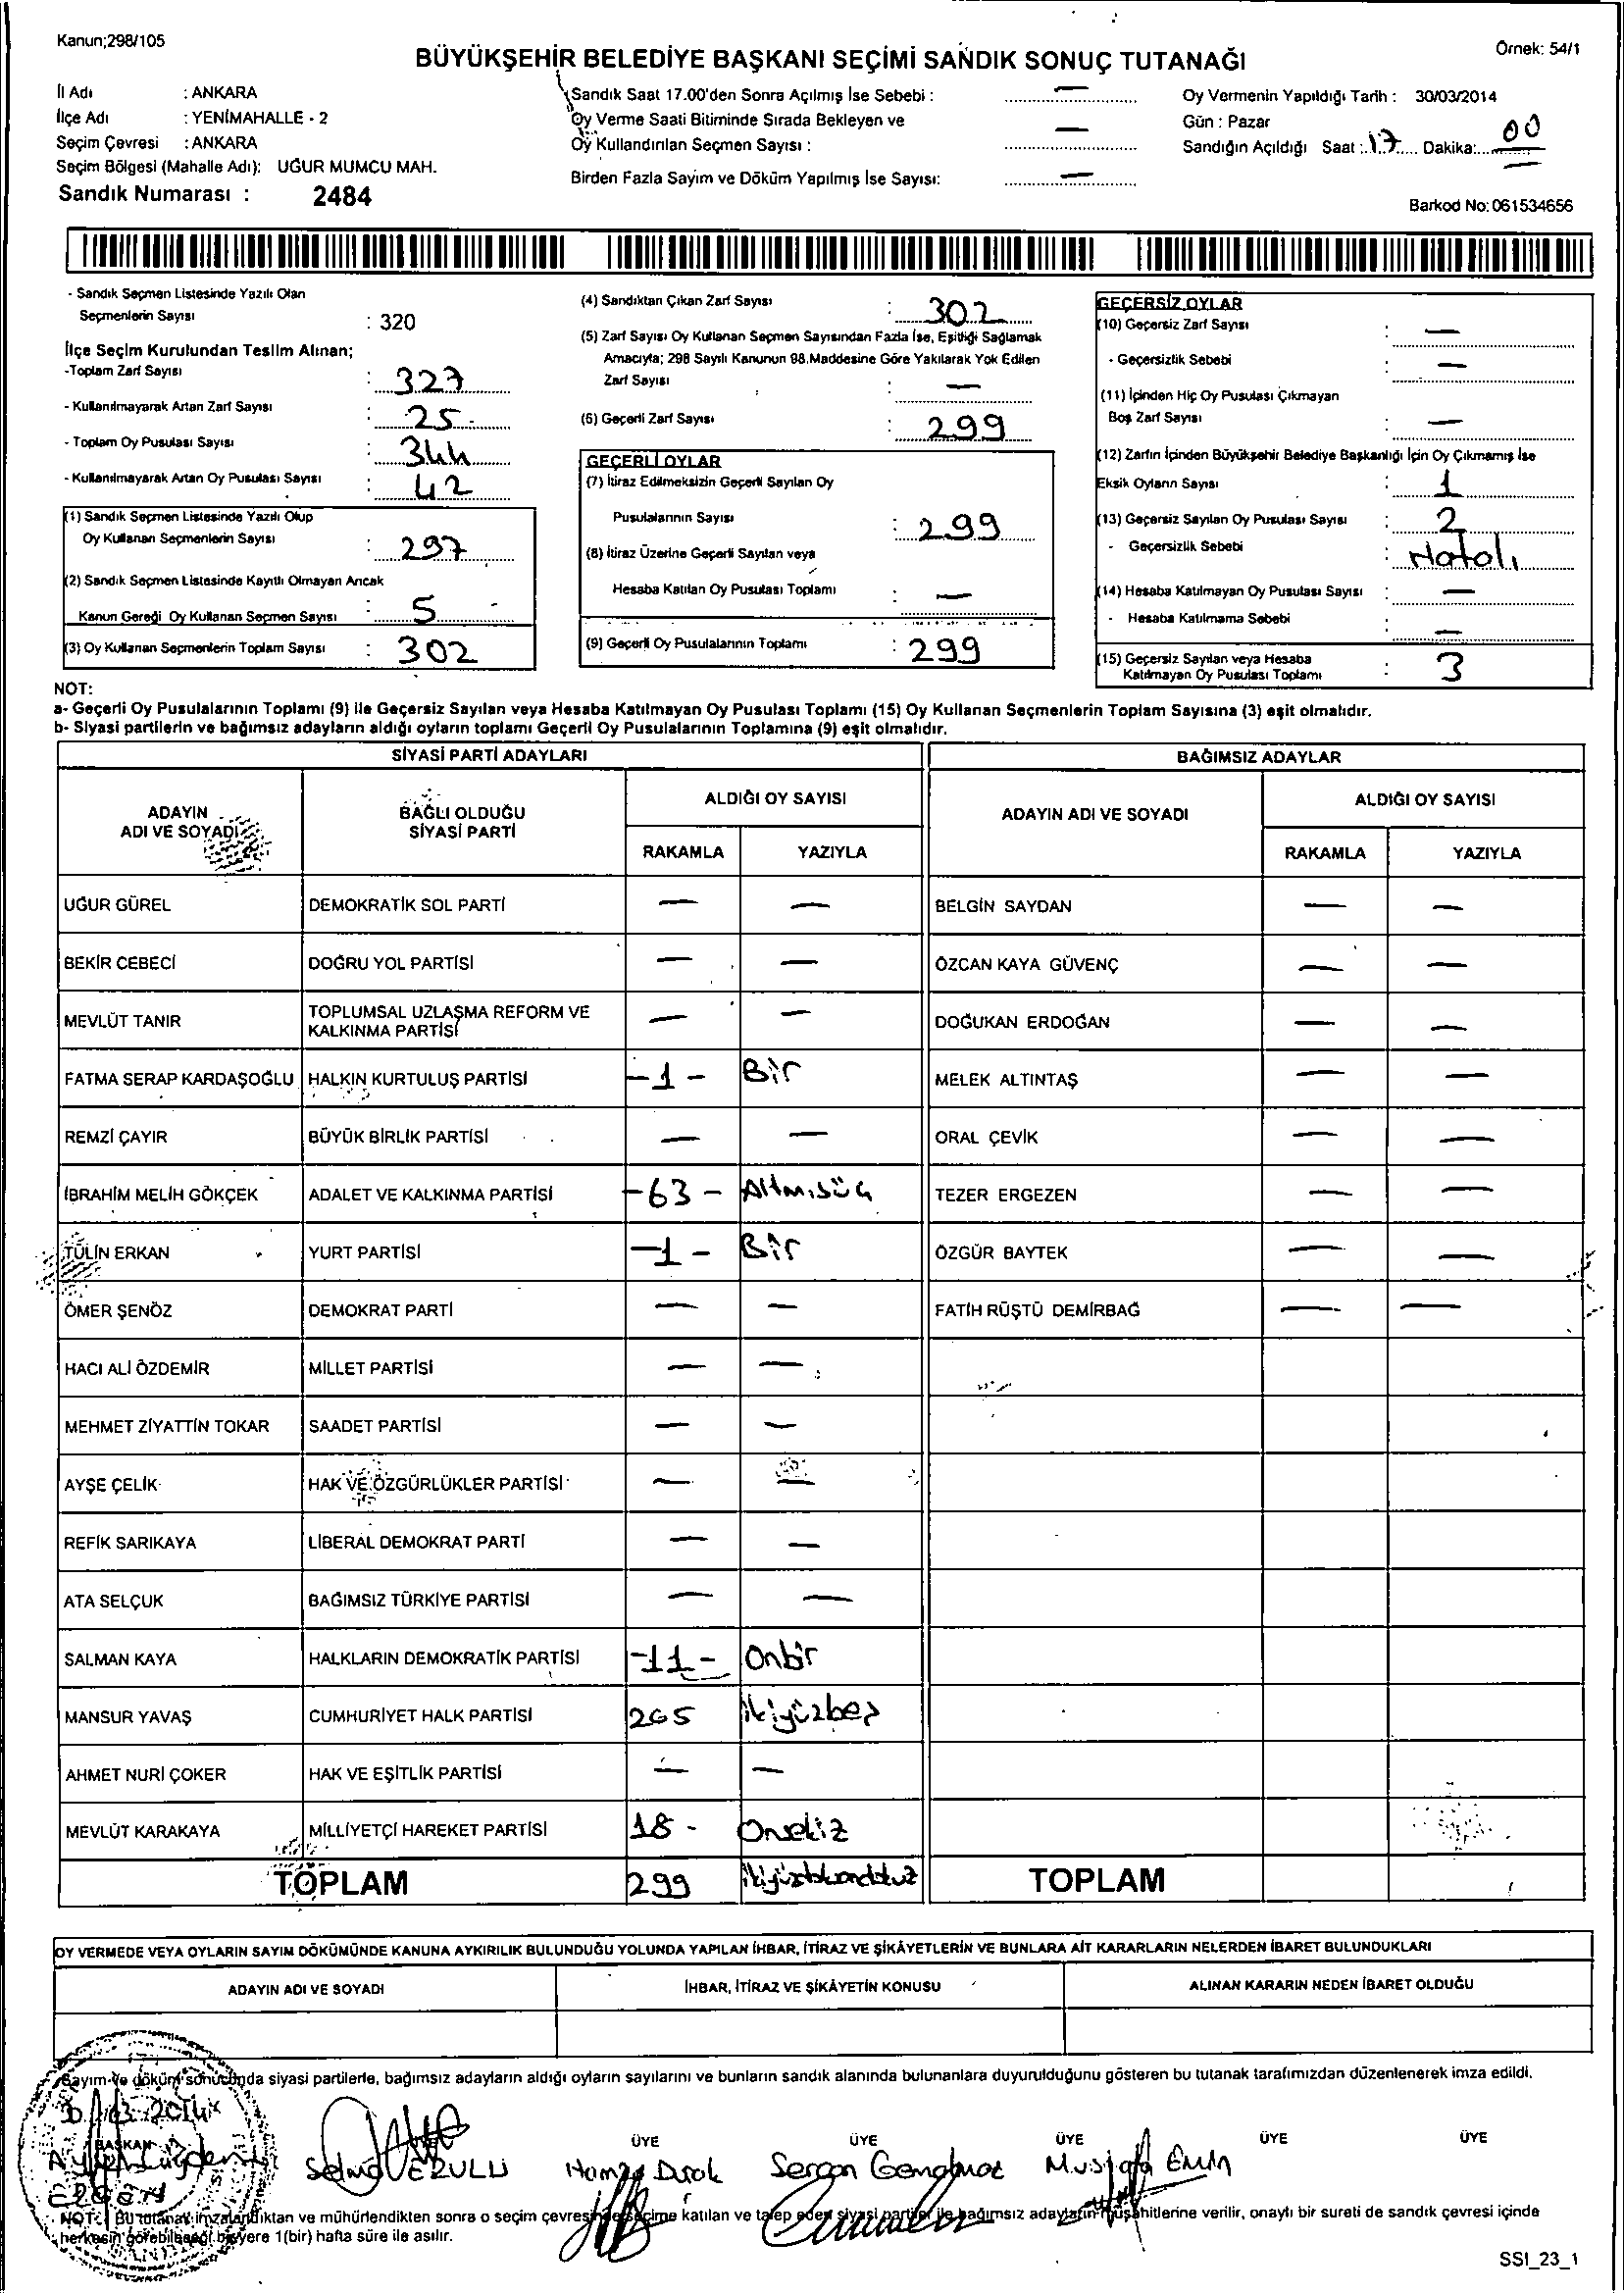 Kanun;298/105
Örnek: 54/1
BÜYÜKŞEHİR BELEDİYE BAŞKANI SEÇİMİ SANDIK SONUÇ TUTANAĞI
İl Adı : ANKARA
İlçe Adı : YENİMAHALLE - 2
Seçim Çevresi : ANKARA
Seçim Bölgesi (Mahalle Adı): UĞUR MUMCU MAH.
Sandık Numarası : 2484
Sandık Saat 17.00'den Sonra Açılmış İse Sebebi : —
Oy Verme Saati Bitiminde Sırada Bekleyen ve
Oy Kullandırılan Seçmen Sayısı : —
Birden Fazla Sayım ve Döküm Yapılmış İse Sayısı: —
Oy Vermenin Yapıldığı Tarih : 30/03/2014
Gün : Pazar
Sandığın Açıldığı Saat : 17 Dakika: 00
Barkod No: 061534656
- Sandık Seçmen Listesinde Yazılı Olan
Seçmenlerin Sayısı : 320
İlçe Seçim Kurulundan Teslim Alınan;
-Toplam Zarf Sayısı : 327
- Kullanılmayarak Artan Zarf Sayısı : 25
- Toplam Oy Pusulası Sayısı : 344
- Kullanılmayarak Artan Oy Pusulası Sayısı : 42
(1) Sandık Seçmen Listesinde Yazılı Olup
Oy Kullanan Seçmenlerin Sayısı : 297
(2) Sandık Seçmen Listesinde Kayıtlı Olmayan Ancak
Kanun Gereği Oy Kullanan Seçmen Sayısı : 5
(3) Oy Kullanan Seçmenlerin Toplam Sayısı : 302
(4) Sandıktan Çıkan Zarf Sayısı : 302
(5) Zarf Sayısı Oy Kullanan Seçmen Sayısından Fazla İse, Eşitliği Sağlamak
Amacıyla; 298 Sayılı Kanunun 98.Maddesine Göre Yakılarak Yok Edilen
Zarf Sayısı : —
(6) Geçerli Zarf Sayısı : 299
GEÇERLİ OYLAR
(7) İtiraz Edilmeksizin Geçerli Sayılan Oy
Pusulalarının Sayısı : 299
(8) İtiraz Üzerine Geçerli Sayılan veya
Hesaba Katılan Oy Pusulası Toplamı : —
(9) Geçerli Oy Pusulalarının Toplamı : 299
GEÇERSİZ OYLAR
(10) Geçersiz Zarf Sayısı : —
- Geçersizlik Sebebi : —
(11) İçinden Hiç Oy Pusulası Çıkmayan
Boş Zarf Sayısı : —
(12) Zarfın İçinden Büyükşehir Belediye Başkanlığı İçin Oy Çıkmamış İse
Eksik Oyların Sayısı : 1
(13) Geçersiz Sayılan Oy Pusulası Sayısı : 2
- Geçersizlik Sebebi : Hatalı
(14) Hesaba Katılmayan Oy Pusulası Sayısı : —
- Hesaba Katılmama Sebebi : —
(15) Geçersiz Sayılan veya Hesaba
Katılmayan Oy Pusulası Toplamı : 3
NOT:
a- Geçerli Oy Pusulalarının Toplamı (9) ile Geçersiz Sayılan veya Hesaba Katılmayan Oy Pusulası Toplamı (15) Oy Kullanan Seçmenlerin Toplam Sayısına (3) eşit olmalıdır.
b- Siyasi partilerin ve bağımsız adayların aldığı oyların toplamı Geçerli Oy Pusulalarının Toplamına (9) eşit olmalıdır.
SİYASİ PARTİ ADAYLARI
ADAYIN ADI VE SOYADI BAĞLI OLDUĞU SİYASİ PARTİ ALDIĞI OY SAYISI
RAKAMLA YAZIYLA
UĞUR GÜREL DEMOKRATİK SOL PARTİ — —
BEKİR CEBECİ DOĞRU YOL PARTİSİ — —
MEVLÜT TANIR TOPLUMSAL UZLAŞMA REFORM VE KALKINMA PARTİSİ — —
FATMA SERAP KARDAŞOĞLU HALKIN KURTULUŞ PARTİSİ -1- Bir
REMZİ ÇAYIR BÜYÜK BİRLİK PARTİSİ — —
İBRAHİM MELİH GÖKÇEK ADALET VE KALKINMA PARTİSİ -63- Altmışüç
TÜLİN ERKAN YURT PARTİSİ -1- Bir
ÖMER ŞENÖZ DEMOKRAT PARTİ — —
HACI ALİ ÖZDEMİR MİLLET PARTİSİ — —
MEHMET ZİYATTİN TOKAR SAADET PARTİSİ — —
AYŞE ÇELİK HAK VE ÖZGÜRLÜKLER PARTİSİ — —
REFİK SARIKAYA LİBERAL DEMOKRAT PARTİ — —
ATA SELÇUK BAĞIMSIZ TÜRKİYE PARTİSİ — —
SALMAN KAYA HALKLARIN DEMOKRATİK PARTİSİ -11- Onbir
MANSUR YAVAŞ CUMHURİYET HALK PARTİSİ 205 ikiyüzbeş
AHMET NURİ ÇOKER HAK VE EŞİTLİK PARTİSİ — —
MEVLÜT KARAKAYA MİLLİYETÇİ HAREKET PARTİSİ 18- Onsekiz
TOPLAM 299 ikiyüzdoksandokuz
BAĞIMSIZ ADAYLAR
ADAYIN ADI VE SOYADI ALDIĞI OY SAYISI
RAKAMLA YAZIYLA
BELGİN SAYDAN — —
ÖZCAN KAYA GÜVENÇ — —
DOĞUKAN ERDOĞAN — —
MELEK ALTINTAŞ — —
ORAL ÇEVİK — —
TEZER ERGEZEN — —
ÖZGÜR BAYTEK — —
FATİH RÜŞTÜ DEMİRBAĞ — —
TOPLAM
OY VERMEDE VEYA OYLARIN SAYIM DÖKÜMÜNDE KANUNA AYKIRILIK BULUNDUĞU YOLUNDA YAPILAN İHBAR, İTİRAZ VE ŞİKÂYETLERİN VE BUNLARA AİT KARARLARIN NELERDEN İBARET BULUNDUKLARI
ADAYIN ADI VE SOYADI İHBAR, İTİRAZ VE ŞİKÂYETİN KONUSU ALINAN KARARIN NEDEN İBARET OLDUĞU
Sayım ve döküm sonucunda siyasi partilerle, bağımsız adayların aldığı oyların sayılarını ve bunların sandık alanında bulunanlara duyurulduğunu gösteren bu tutanak tarafımızdan düzenlenerek imza edildi.
BAŞKAN ÜYE ÜYE ÜYE ÜYE ÜYE
Selma Hamza Sercan Mustafa Emin
NOT: Bu tutanak imzalandıktan ve mühürlendikten sonra o seçim çevresinde seçime katılan ve talep eden siyasi partiler ile bağımsız adayların müşahitlerine verilir, onaylı bir sureti de sandık çevresi içinde
herkesin görebileceği bir yere 1(bir) hafta süre ile asılır.
SSI_23_1